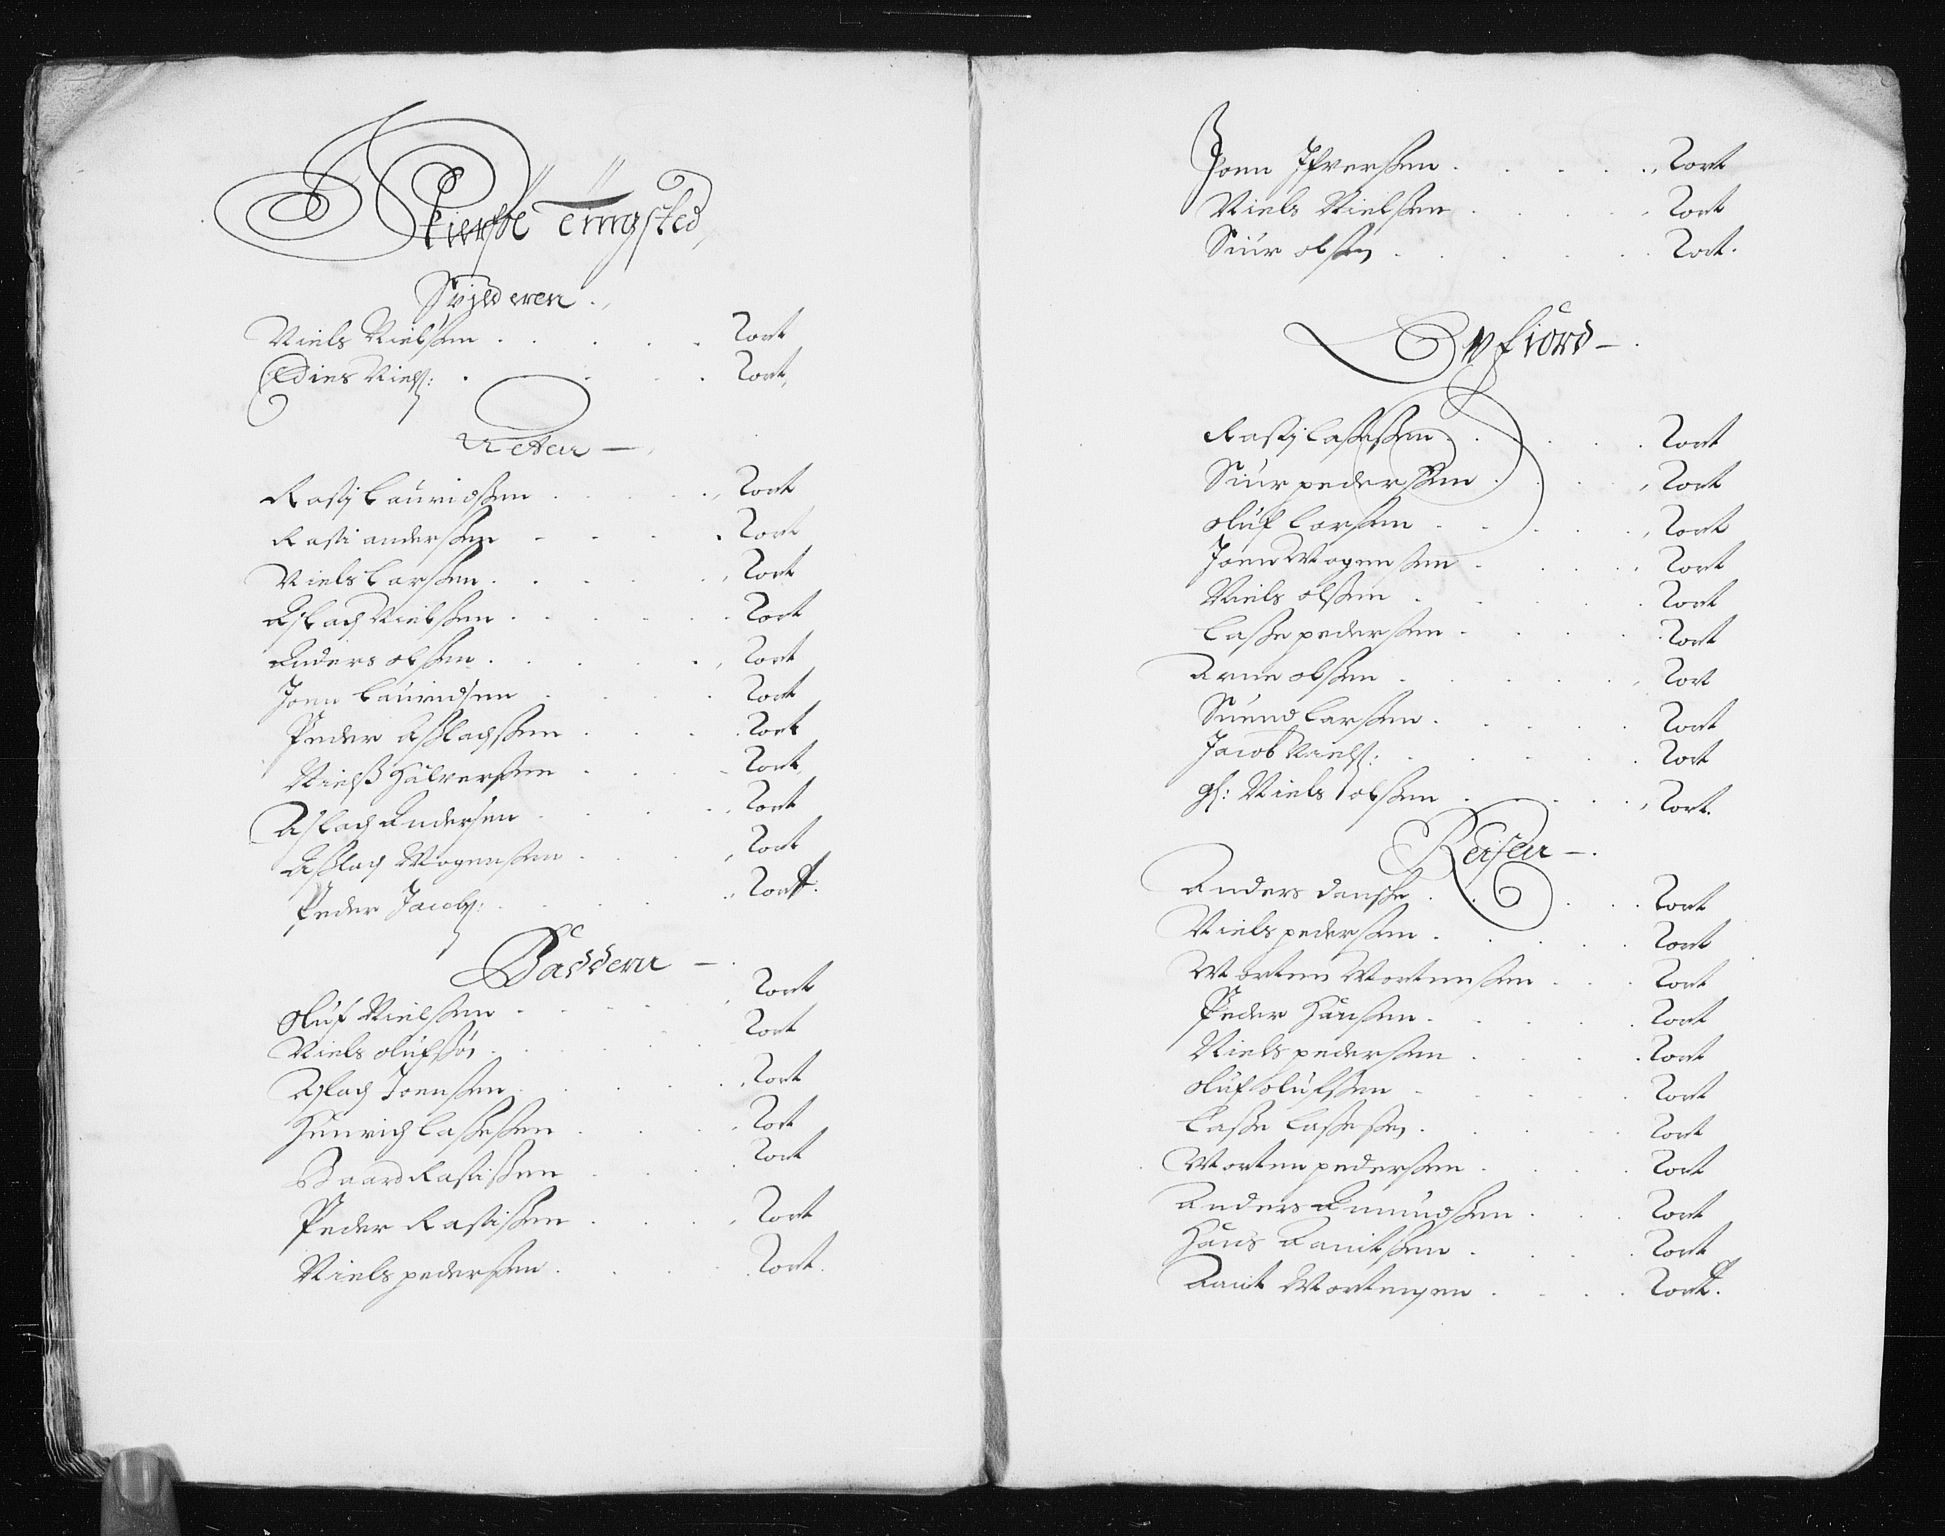 Skierføe Tingsted,
Spilderen.
Niels Nielssen . . . . . 2 ort
Edies Niels: . . . . 2 ort,
Rasti Lauridssen . . . . 2 ort
Rasti anderssen . . . . 2 ort
Niels Larssen . . . . . 2 ort
Aslach Nielssen . . . . . 2 ort
Anders olssen . . . . . 2 ort
Joen Lauridsen . . . . 2 ort
Peder Asslachssen . . . . 2 ort
Nielss Halverssen . . . . 2 ort
Aslach Andersen . . . . 2 ort
Asslach Mogenssen . . . . 2 ort
Peder Jacobs: . . . . 2 ort.
Badderen — .
Oluf Nielssen . . . . . 2 ort
Niels olufssøn . . . . 2 ort
Aslach Joenssen . . . . . 2 ort
Henrich Lassessen . . . . 2 ort
Baard Rastissen . . . . 2 ort
Peder Rastissen . . . . 2 ort
Niels pederssen . . . . 2 ort.
Joen Ifverssen . . . . . 2 ort
Niels Nielssen . . . . 2 ort
Siur olssen . . . . . 2 ort.
Rasti Lassessen . . . . 2 ort
Siur pederssen . . . . 2 ort
Oluf Larssen . . . . . 2 ort
Joen Mogenssen . . . . 2 ort
Niels olssen . . . . . 2 ort
Lasse pederssen . . . . . 2 ort
Arne olssen . . . . . 2 ort
Suend Larssen . . . . . 2 ort
Jacob Niels: . . . . . 2 ort
gl: Niels olssen . . . . 2 ort.
Reisen — .
Anders danske . . . . . 2 ort
Niels pederssen . . . . . 2 ort
Morten Mortenssen . . . 2 ort
Peder Hanssen . . . . . 2 ort
Niels pederssen . . . . 2 ort
Oluf olufssen . . . . . 2 ort
Lasse Lassessen . . . . . 2 ort
Morten pederssen . . . . 2 ort
Anders Amundssen . . . 2 ort
Hans . . . . 2 ort
Mortensen . . . . 2 ort.